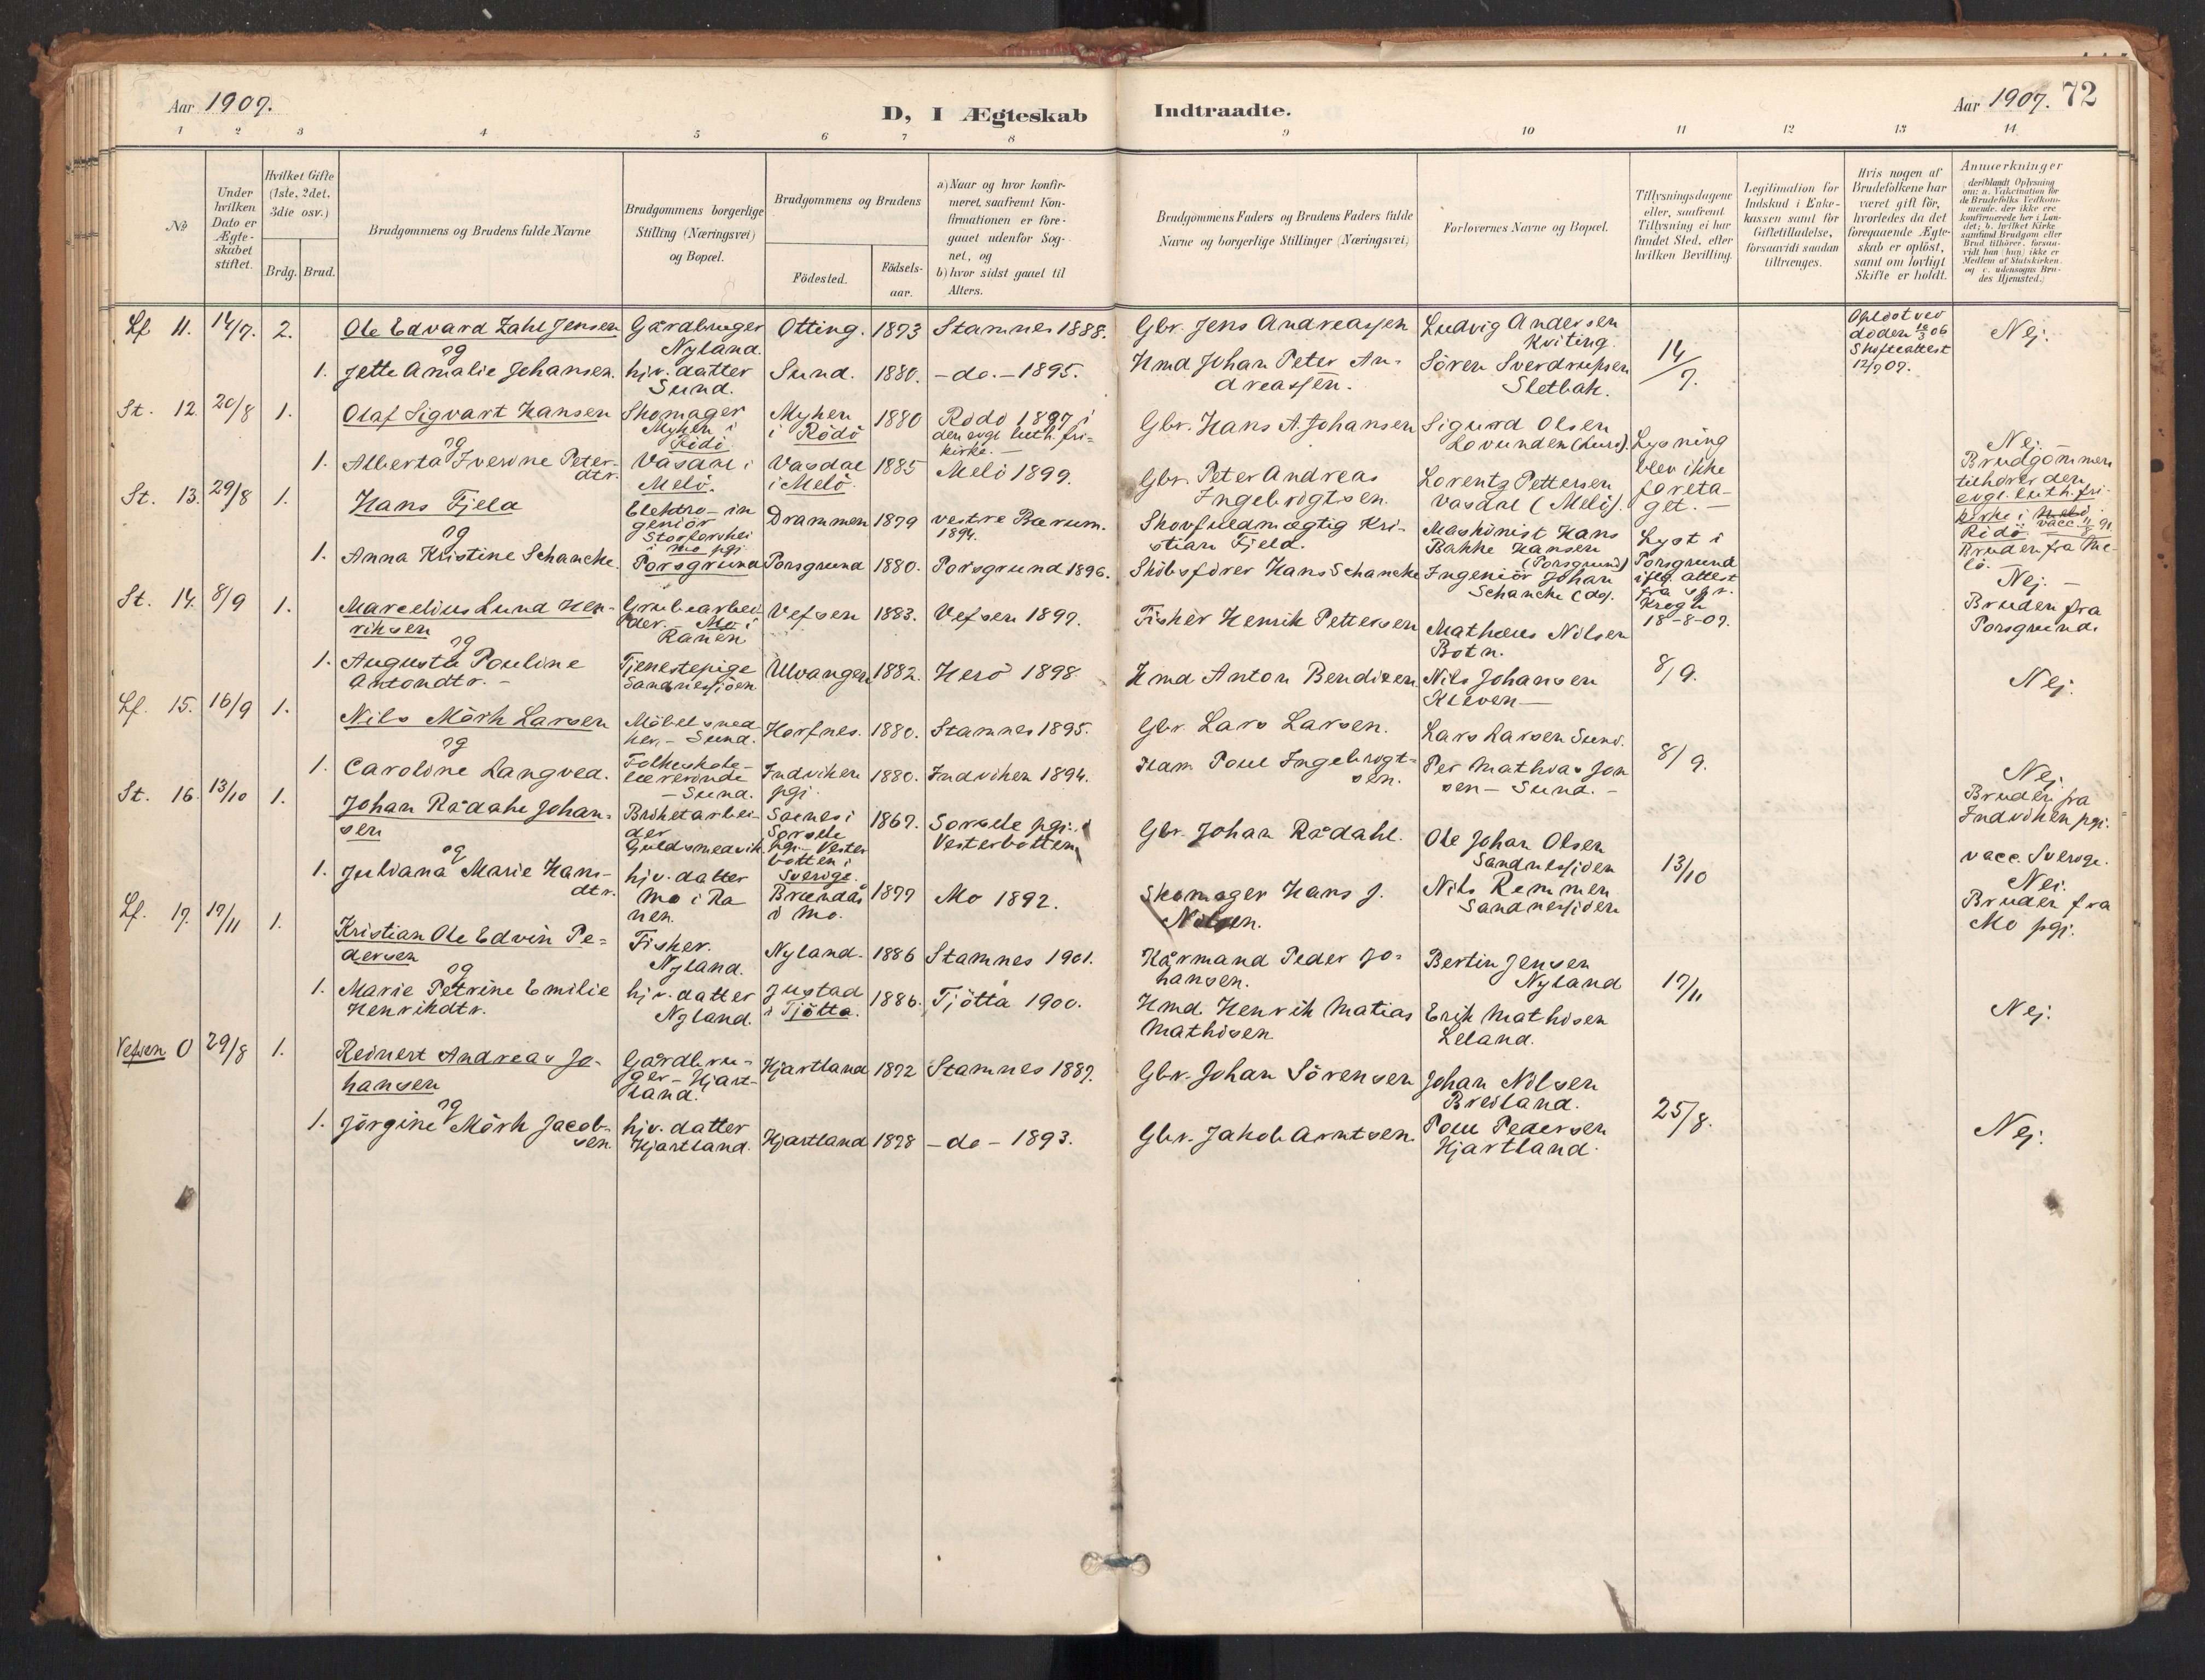 Aar 1907.
D, I Ægteskab Indtraadte.
Aar 1907. 72
1 2 3 4 5 6 7 8 9 10 11 12 13 14
No
Under hvilken Dato er Ægteskabet stiftet.
Hvilket Gifte (1ste, 2det, 3die osv.)
Brdg. Brud.
Brudgommens og Brudens fulde Navne
Brudgommens borgerlige Stilling (Næringsvei) og Bopæl.
Brudgommens og Brudens
Födested.
Födsels-aar.
a) Naar og hvor konfir-
meret, saafremt Kon-
firmationen er fore-
gaaet udenfor Sog-
net, og
b) hvor sidst gaaet til
Alters.
Brudgommens Faders og Brudens Faders fulde
Navne og borgerlige Stillinger (Næringsvei)
Forlovernes Navne og Bopæl.
Tillysningsdagene
eller, saafremt
Tillysning ei har
fundet Sted, efter
hvilken Bevilling.
Legitimation for
Indskud i Enke-
kassen samt for
Giftetilladelse,
forsaavidt saadan
tiltrænges.
Hvis nogen af
Brudefolkene har
været gift för,
hvorledes da det
foregaaende Ægte-
skab er oplöst,
samt om lovligt
Skifte er holdt.
Anmerkninger
(deriblandt Oplysning
om: a. Vakcination for
de Brudefolks Vedkom-
mende, der ikke ere
konfirmerede her i Lan-
det; b. hvilket Kirke-
samfund Brudgom eller
Brud tilhörer, forsaa-
vidt han (hun) ikke er
Medlem af Statskirken
og c. udensogns Bru-
des Hjemsted.)
Lf 11. 14/7. 2. Ole Edvard Zahl Jensen Gårdbruger Nyland. Otting. 1873 Stamnes 1888. Gbr. Jens Andreassen Ludvig Andersen Kviting. 14/7. Oplöst ved döden 10/3 06 Skifteattest 12/7 07. Nej.
og
1. Jette Amalie Johansen. hjv. datter Sund. Sund. 1880. -do.- 1895. Hmd Johan Peter Andreassen. Sören Sverdrupsen Sletbak.
St. 12. 20/8 1. Olaf Sigvart Hansen Skomager Myken i Rödö Myken i Rödö 1880 Rödö 1897 i den evgl. luth. frikirke. - Gbr. Hans A. Johansen Sigurd Olsen Lovunden (Lurö). Lysning blev ikke foretaget. - Nej. - Brudgommen tilhører den evgl. luth. frikirke i Rödö. Bruden fra Melö. -
og
1. Alberta Iverine Peterdtr. Vasdal i Melö. Vasdal i Melö. 1885 Melö 1899. Gbr. Peter Andreas Ingebrigtsen. Lorentz Pettersen Vasdal (Melö).
St. 13. 29/8 1. Hans Fjeld Elektro-ingeniör Storforshei i Mo pgj Drammen 1879 vestre Bærum. 1894. Skovfuldmægtig Kristian Fjeld. Maskinist Hans Bakke Hansen (Porsgrund) Lyst i Porsgrund iflg. attest fra spr. Krogh 18-8-07. Nej. - Bruden fra Porsgrund.
og
1. Anna Kristine Schancke. Porsgrund Porsgrund 1880. Porsgrund 1896. Skibsfører Hans Schancke Ingeniör Johan Schancke (do).
St. 14. 8/9 1. Marcelius Lund Henriksen Grubearbeider. - Mo i Ranen Vefsen 1883. Vefsen 1897. Fisker Henrik Pettersen Mathæus Nilsen Botn. 8/9. Nej.
og
1. Augusta Pouline Antondtr. - Tjenestepige Sandnessjöen Ulvangen 1882. Herö 1898 Hmd Anton Bendixen. Nils Johansen Kleven -
Lf. 15. 16/9 1. Nils Mörk Larsen Möbelsnedker, - Sund. Horfnes. 1880. Stamnes 1895. Gbr. Lars Larsen. Lars Larsen Sund. 8/9. Nej. Bruden fra Indviken pgj.
og
1. Caroline Langved. Folkeskole-lærerinde - Sund. Indviken pgj. 1880. Indviken 1894. Ham Poul Ingebrigtsen. Per Mathias Jonsen - Sund. -
St. 16. 13/10 1. Johan Rådahl Johansen Briketarbeider Guldsmedvik Sornes i Sorsele pgj. Vesterbotten i Sverige. 1867. Sorsele pgj. i Vesterbotten Gbr. Johan Rådahl. Ole Johan Olsen Sandnessjöen 13/10 vacc. Sverige. Nei. Bruden fra Mo pgj.
og
1. Juliana Marie Hansdtr. hjv. datter Mo i Ranen. Brændås i Mo. 1877 Mo 1892. Skomager Hans J. Nilsen. Nils Remmen Sandnessjöen
Lf. 17. 17/11 1. Kristian Ole Edvin Pedersen Fisker. Nyland. Nyland. 1886 Stamnes 1901. Kårmand Peder Johansen. Bertin Jensen Nyland 17/11 Nej.
og
1. Marie Petrine Emilie Henrikdtr. hjv. datter Nyland. Justad i Tjötta. 1886. Tjötta 1900. Hmd. Henrik Matias Mathisen. Erik Mathisen Leland.
Vefsen 0 29/8 1. Reinert Andreas Johansen Gårdbruger - Hjartland. Hjartland 1872 Stamnes 1887. Gbr. Johan Sörensen Johan Nilsen Breiland. 25/8. Nej.
og
1. Jörgine Mörk Jacobsen. hjv. datter Hjartland. Hjartland 1878 - do - 1893. Gbr. Jakob Arntsen. Poul Pedersen Hjartland.